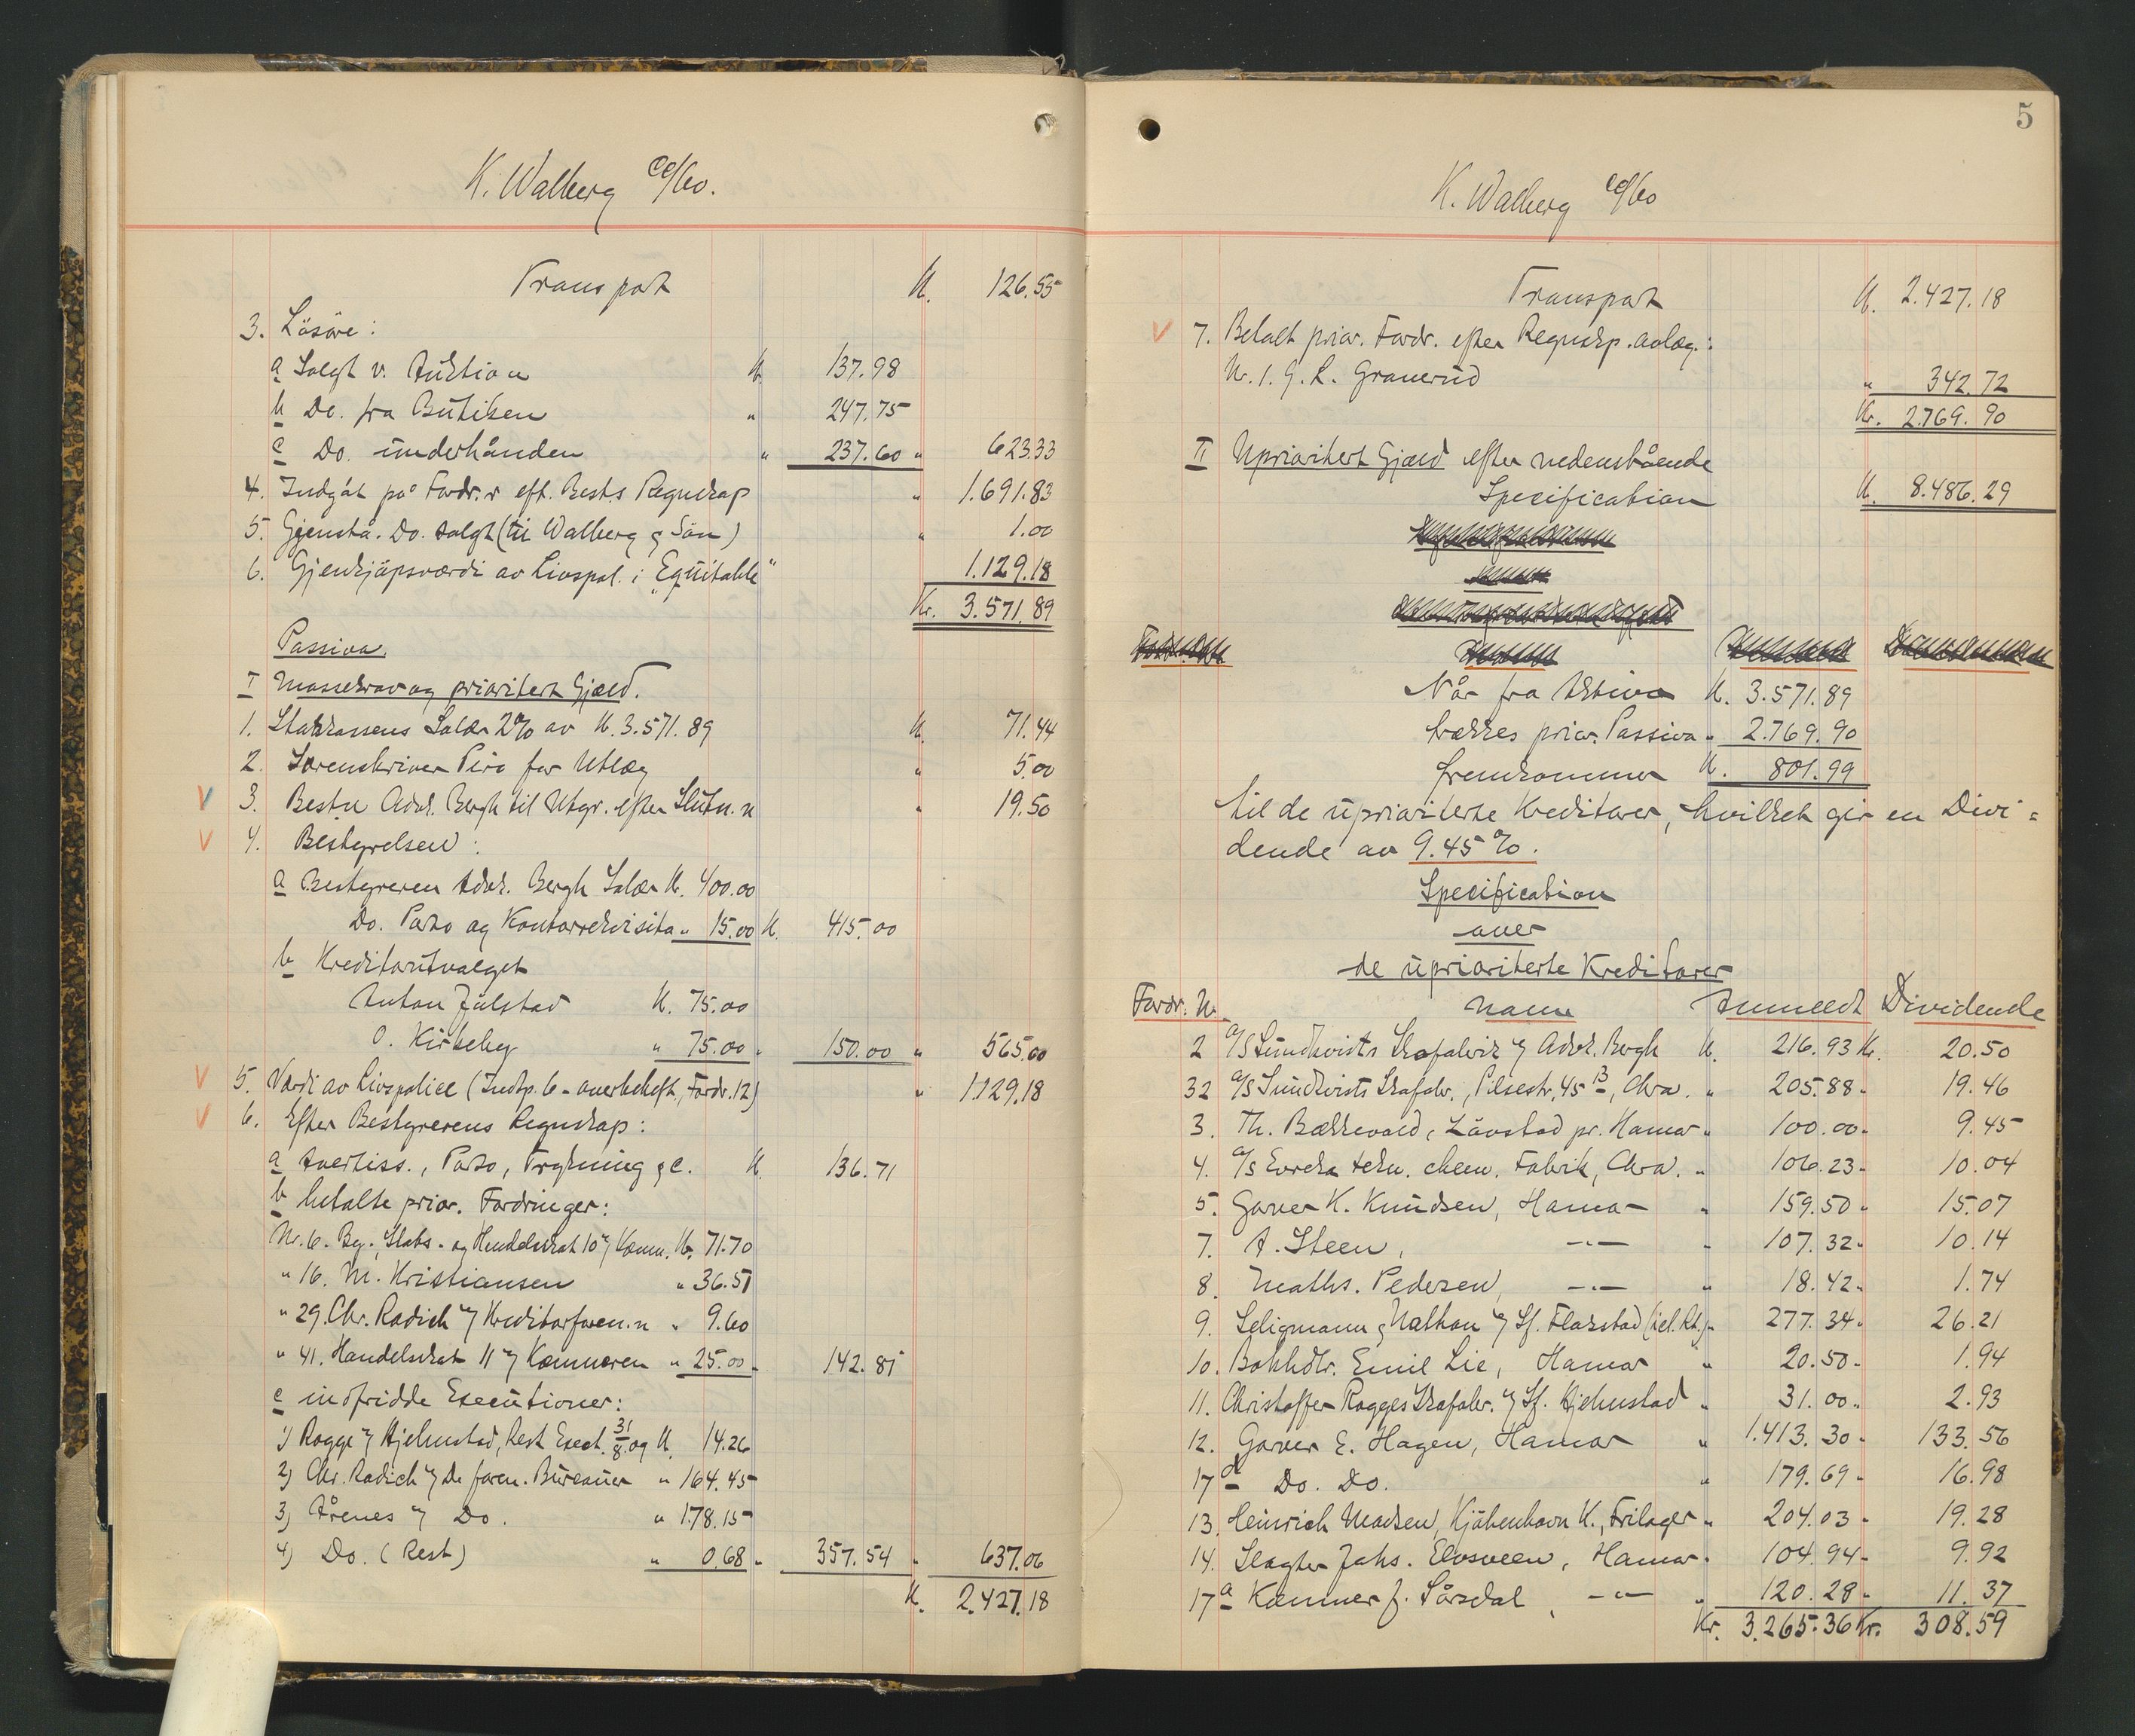 K. Walberg co/60.
Transport Kr. 126.55
3. Løsøre:
a Solgt v. Auktion Kr. 137.98
b Do. fra Butiken " 247.75
c Do. underhånden " 237.60 " 623.33
4. Indgåt på Fordr.r eft. Bests Regnskap " 1.691.83
5. Gjenstå. Do. solgt (til Walberg & Søn) " 1.00
6. Gjenkjøpsværdi av Livspol. i "Equitable" 1.129.18
Kr. 3.571.89
Passiva.
I Massekrav og prioritert Gjæld.
1. Statskassens Salær 2% av Kr. 3.571.89 Kr. 71.44
2. Sorenskriver Piro for Utlæg " 5.00
3. Bestn Advk. Bergh til Utgr. efter Slutn.n " 19.50
4. Bestyrelsen:
a Bestyreren Advk. Bergh Salær Kr. 400.00
Do. Porto og Kontorrekvisita " 15.00 Kr. 415.00
b Kreditorutvalget
Anton Julstad Kr. 75.00
O. Kirkeby " 75.00 " 150.00 " 565.00
5. Værdi av Livspolice (Indtp. 6 - overbeheft., Fordr. 12) " 1.129.18
6. Efter Bestyrerens Regnskap:
a Avertiss., Porto, Trykning & c. Kr. 136.71
b betalte prior. Fordringer:
Nr. 6. By-, Stats- og Hendelskat 10 v/ Kæmn. Kr. 71.70
" 16. M. Kristiansen " 36.51
" 29. Chr. Radich v/ Kreditorforen.n " 9.60
" 41. Handelskat 11 v/ Kæmneren " 25.00 " 142.81
c indfridde Executioner:
1) Rogge v/ Hjelmstad, Rest Exect. 31/8 og Kr. 14.26
2) Chr. Radich v/ De foren. Bureauer " 164.45
3) Årenes v/ Do. " 178.15
4) Do. (Rest) " 0.68 " 357.54 " 637.06
Kr. 2.427.18
5
K. Walberg co/60
Transport Kr. 2.427.18
7. Betalt prior. Fordr. efter Regnskp. avlæg.:
Nr. 1. G. L. Granerud " 342.72
Kr. 2.769.90
II Uprioritert Gjæld efter nedenstående
Specification Kr. 8.486.29
Når fra Aktiva Kr. 3.571.89
trækkes prior. Passiva " 2.769.90
fremkommer Kr. 801.99
til de uprioriterte Kreditorer, hvilket gir en Divi=
dende av 9.45%.
Specification
over
de uprioriterte Kreditorer
Fordr. Nr. Navn Anmeldt Dividende
2 A/S Sundkvists Skofabrik v/ Advk. Bergh Kr. 216.93 Kr. 20.50
32 A/S Sundkvists Skofabr., Pilsestr. 45 B, Chra. " 205.88 " 19.46
3. Th. Bækkevold, Løvstad pr. Hamar " 100.00 " 9.45
4. A/S Evreka tekn. chem. Fabrik, Chra. " 106.23 " 10.04
5. Garver K. Knudsen, Hamar " 159.50 " 15.07
7. A. Steen, -"- " 107.32 " 10.14
8. Maths. Pedersen, -"- " 18.42 " 1.74
9. Seligmann & Nathan v/ Sf. Flakstad (iel. Rt.) " 277.34 " 26.21
10. Bokhdlr. Emil Lie, Hamar " 20.50 " 1.94
11. Christoffer Rogges Skofabr. v/ Sf. Hjelmstad " 31.00 " 2.93
12. Garver E. Hagen, Hamar " 1.413.30 " 133.56
17 d Do. Do. " 179.69 " 16.98
13. Heinrich Madsen, Kjøbenhavn K., Frilager " 204.03 " 19.28
14. Slagter Johs. Elvsveen, Hamar " 104.94 " 9.92
17 a Kæmner J. Sørsdal, -"- " 120.28 " 11.37
Kr. 3.265.36 Kr. 308.59